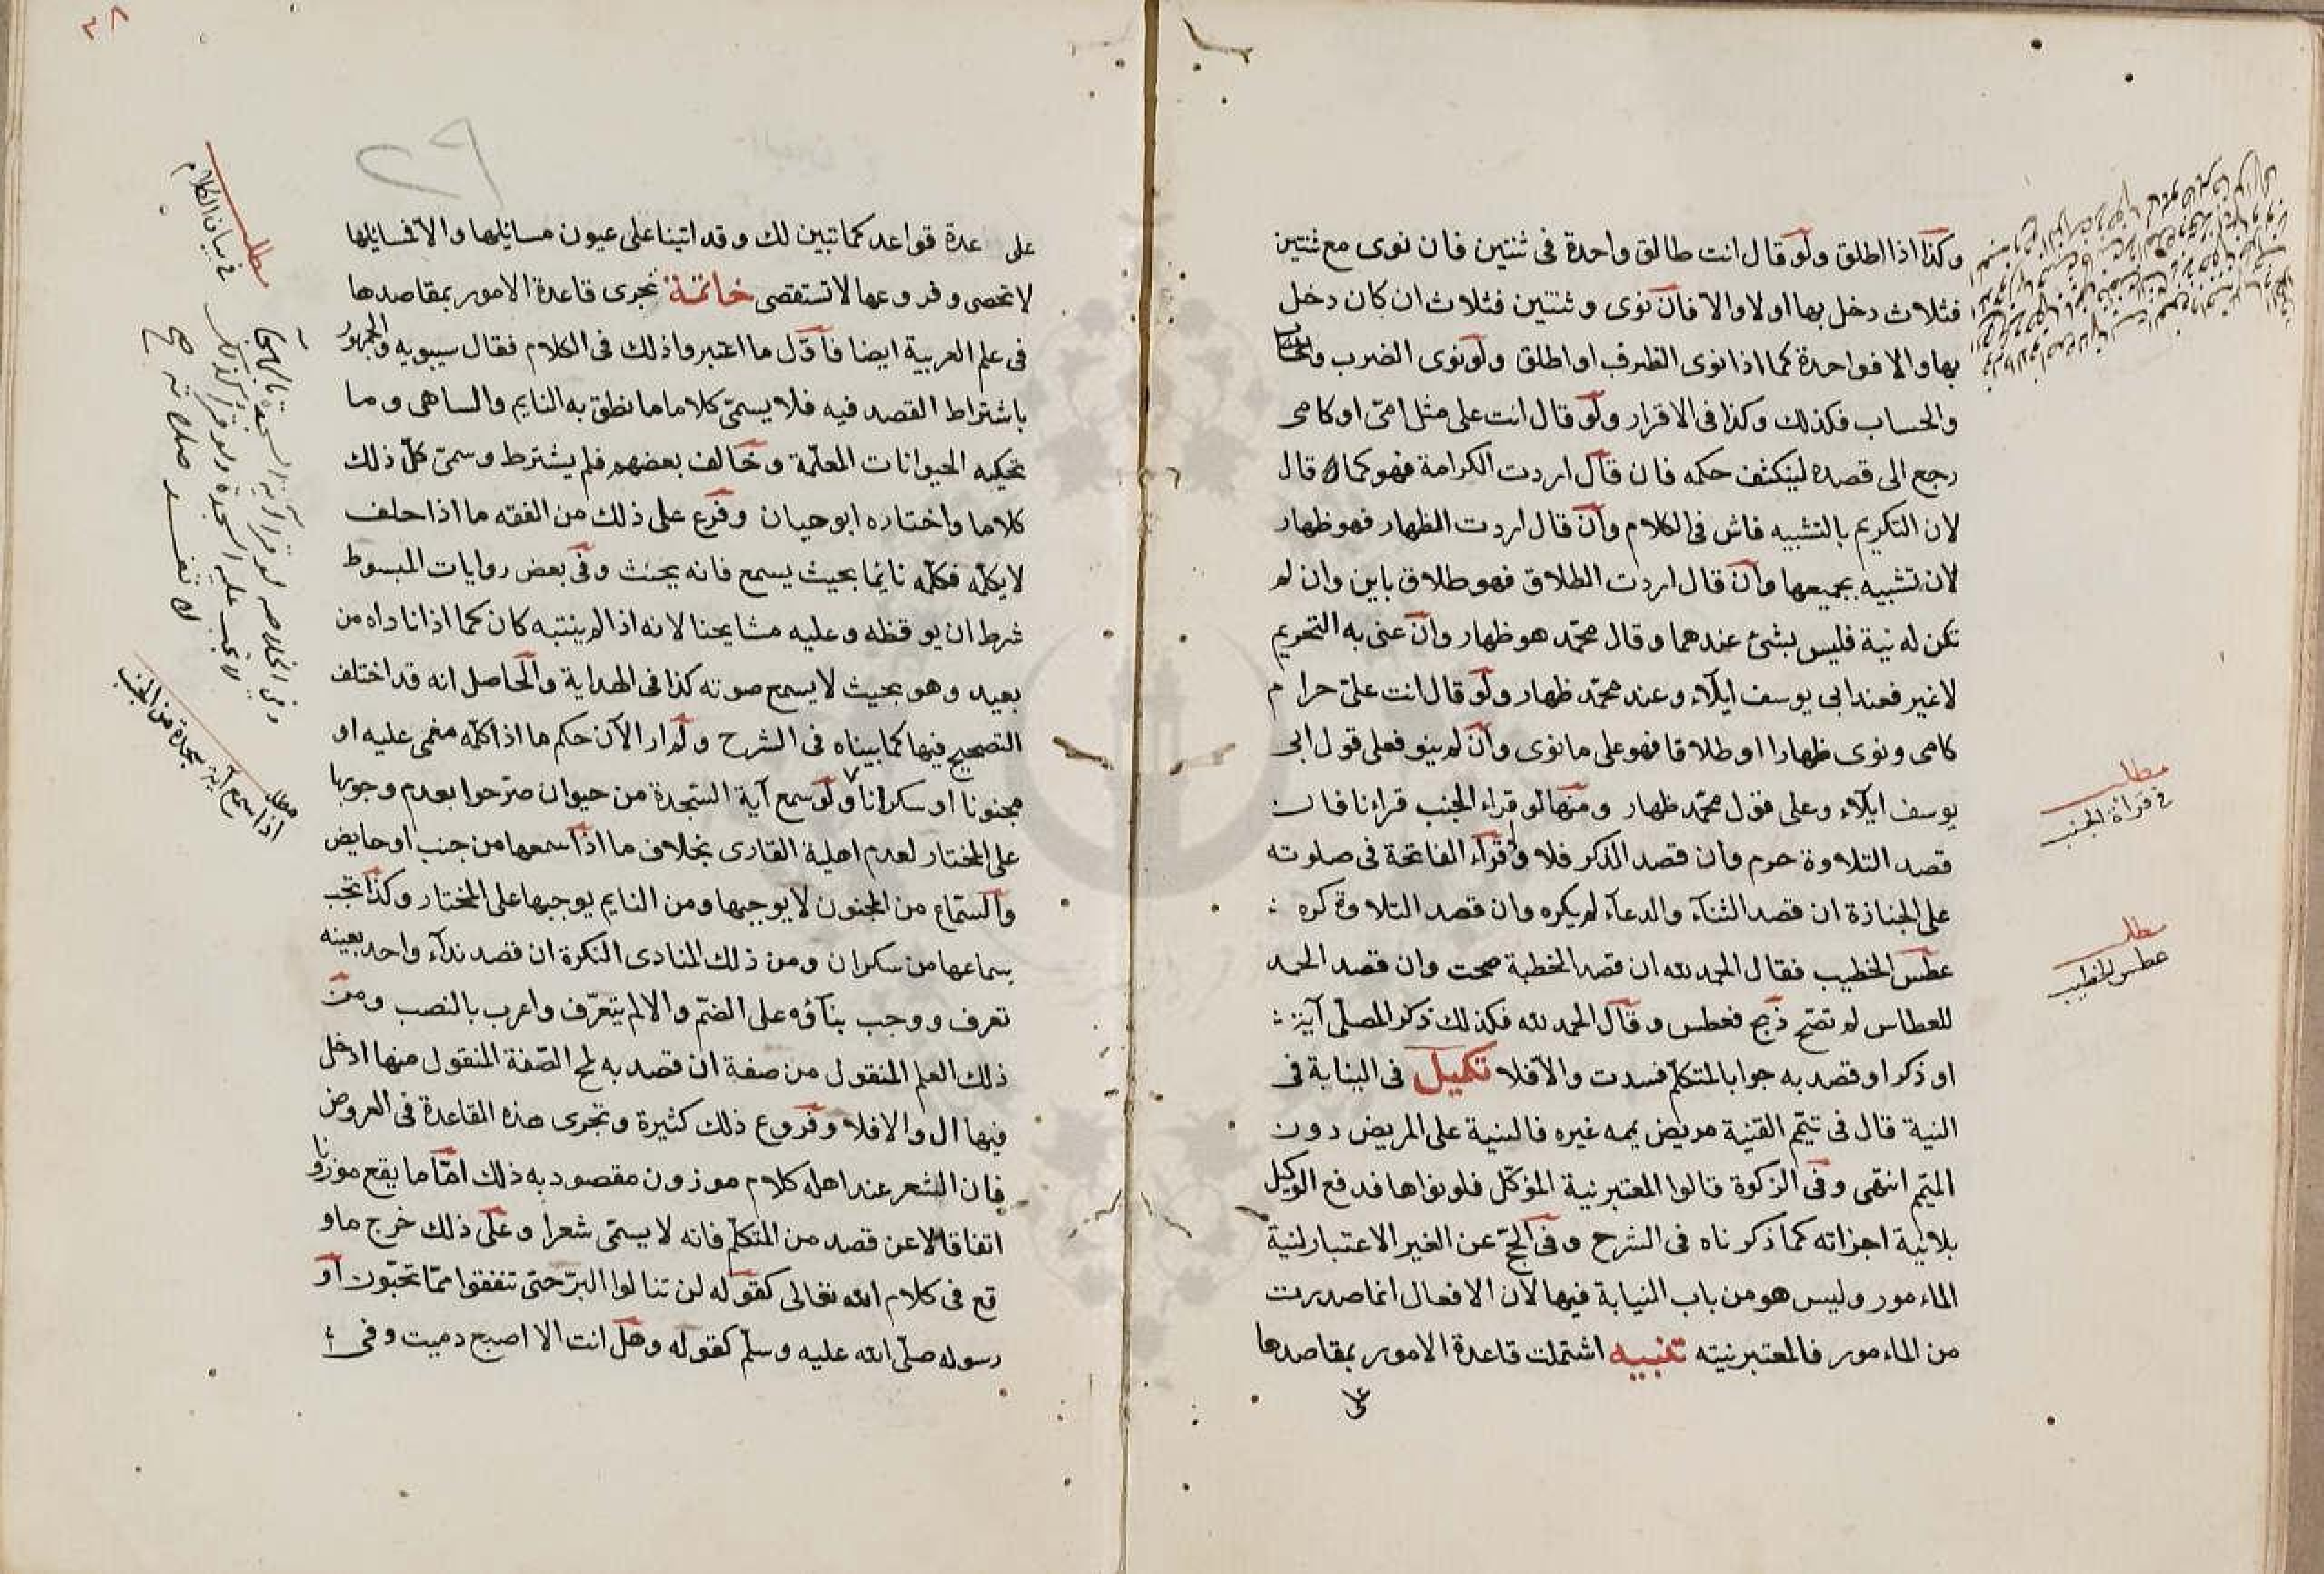 وكذا اذا اطلق ولو قال انت طالق واحدة فى ثنتين فان نوى مع ثنتين
فثلاث دخل بها اولا والا فان نوى وثنتين فثلاث ان كان دخل
بها والا فواحدة كما اذا نوى الظرف او اطلق ولو نوى الضرب
والحساب فكذلك وكذا فى الاقرار ولو قال انت على مثل امى او كامى
رجع الى قصده لينكشف حكمه فان قال اردت الكرامة فهو كما قال
لان التكريم بالتشبيه فاش فى الكلام وان قال اردت الظهار فهو ظهار
لان تشبيه بجميعها وان قال اردت الطلاق فهو طلاق باين وان لم
تكن له نية فليس بشئ عندهما وقال محمّد هو ظهار وان عنى به التحريم
لا غير فعند ابى يوسف ايلآء وعند محمّد ظهار ولو قال انت علىّ حرام
كامى ونوى ظهارا او طلاقا فهو على ما نوى وان لم ينو فعلى قول ابى
يوسف ايلآء وعلى قول محمّد ظهار ومنها لو قراء الجنب قرانا فان
قصد التلاوة حرم وان قصد الذكر فلا ولو قرآء الفاتحة فى صلوته
على الجنازة ان قصد الثنآء والدعآء لم يكره وان قصد التلاوة كره
عطس الخطيب فقال الحمد لله ان قصد الخطبة صحت وان قصد الحمد
للعطاس لم تصّح ذبح فعطس وقال الحمد لله فكذلك ذكر المصلّى آية
او ذكرا وقصد به جوابا لمتكلّم فسدت والّا فلا تكميل فى النيابة فى
النية قال فى تيمّم القنية مريض يممه غيره فالنية على المريض دون
الميّمم انتهى وفى الزكوة قالوا المعتبر نية المؤكّل فلو نواها فدفع الوكيل
بلا نية اجزاته كما ذكرناه فى الشرح وفى الحجّ عن الغير الاعتبار لنية
الماءمور وليس هو من باب النيابة فيها لان الافعال انما صدرت
من الماءمور فالمعتبر نيته تنبيه اشتملت قاعدة الامور بمقاصدها
على
مطلب
فى قراءة الجنب
مطلب
عطس الخطيب
٢٨
٢٩
على عدة قواعد كما تبين لك وقد اتينا على عيون مسائلها والّا فمسائلها
لا تحصى وفروعها لا تستقصى خاتمة تجرى قاعدة الامور بمقاصدها
فى علم العربية ايضا فاوّل ما اعتبروا ذلك فى الكلام فقال سيبويه والجمهور
باشتراط القصد فيه فلا يسمّى كلاما ما نطق به النايم والساهى وما
تحكيه الحيوانات المعلّمة وخالف بعضهم فلم يشترط وسمى كلّ ذلك
كلاما واختاره ابو حيان وفرّع على ذلك من الفقه ما اذا حلف
لا يكلّمه فكلّمه نايما بحيث يسمع فانه يحنث وفى بعض روايات المبسوط
شرط ان يوقظه وعليه مشايخنا لانه اذا لم ينتبه كان كما اذا ناداه من
بعيد وهو بحيث لا يسمع صوته كذا فى الهداية والحاصل انه قد اختلف
التصحيح فيها كما بيناه فى الشرح ولم ار الآن حكم ما اذا كلّمه مغمى عليه او
مجنونا او سكرانا ولو سمع آية السّجدة من حيوان صرّحوا بعدم وجوبها
على المختار لعدم اهلية القارى بخلاف ما اذا سمعها من جنب او حايض
والسّماع من المجنون لا يوجبها ومن النايم يوجبها على المختار وكذا تجب
بسماعها من سكران ومن ذلك المنادى النكرة ان قصد ندآء واحد بعينه
تعرف ووجب بنآؤه على الضمّ والا لم يتعرّف واعرب بالنصب ومن
ذلك العلم المنقول من صفة ان قصد به لمح الصّفة المنقول منها ادخل
فيها ال والا فلا وفروع ذلك كثيرة وتجرى هذه القاعدة فى العروض
فان الشعر عند اهله كلام موزون مقصود به ذلك امّا ما يقع موزونا
اتفاقا لا عن قصد من المتكلّم فانه لا يسمّى شعرا وعلى ذلك خرج ما و
قع فى كلام الله تعالى كقوله لن تنالوا البرّ حتى تنفقوا ممّا تحبّون او
رسوله صلّى الله عليه وسلّم كقوله وهل انت الا اصبع دميت وفى
مطلب
فى بيان الكلام
وفى الخلاصه لو قرأ آية السجدة بالهجا
لا تجب عليه السجدة ولو قرأ كذلك
لا تفسد صلاته صح
مطلب
اذا سمع آية سجدة من الجنب